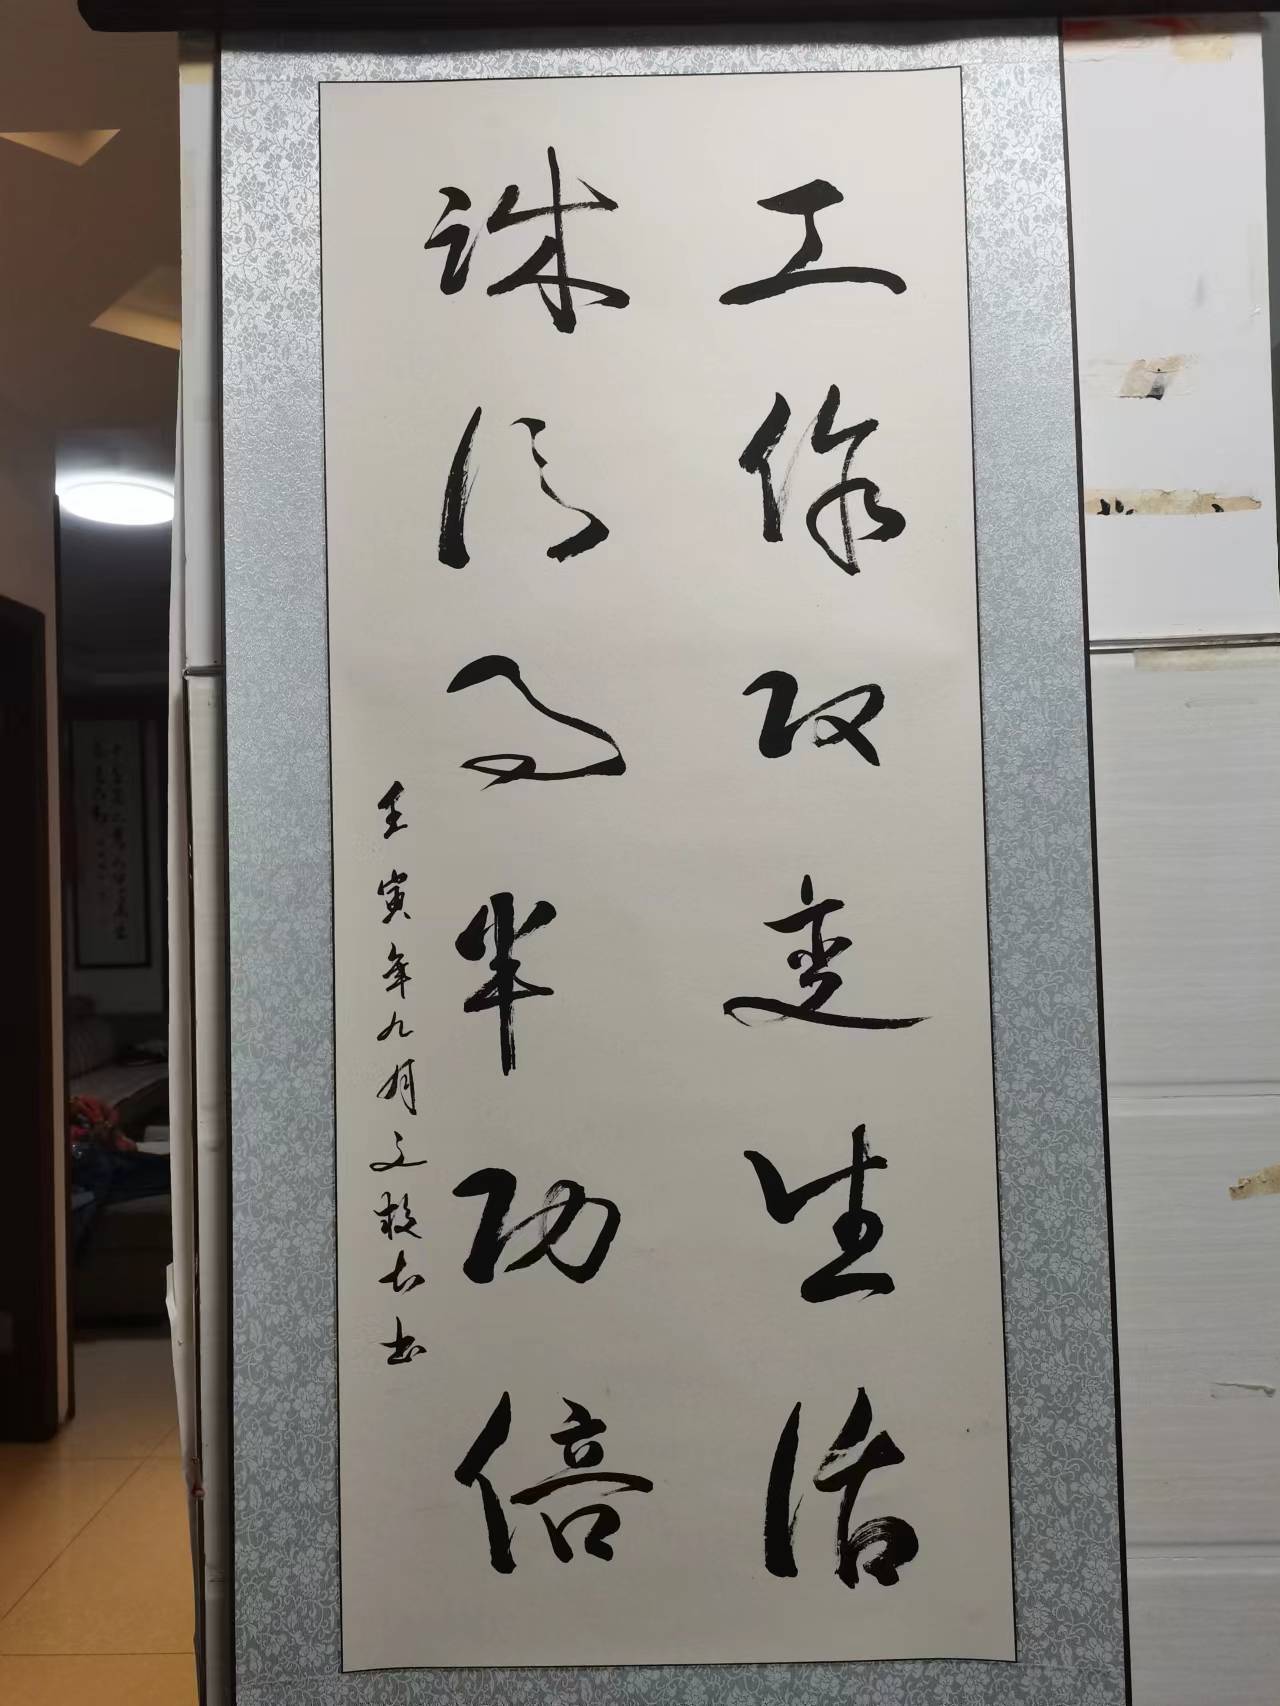 工作改变生活
诚信事半功倍
壬寅年九月文 书